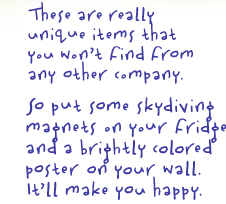 These are really
unique items that
you won't find from
any other company.
So put some skydiving
magnets on your fridge
and a brightly colored
poster on your wall.
It'll make you happy.